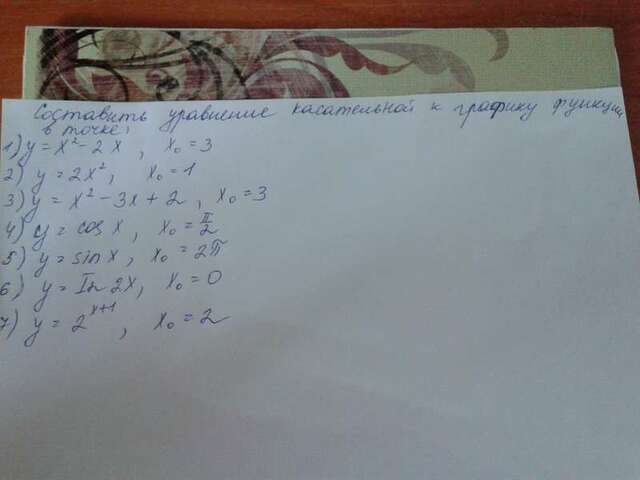 Составить уравнение касательной к графику функции
в точке:
1) y = x² - 2x, x₀ = 3
2) y = 2x², x₀ = 1
3) y = x² - 3x + 2, x₀ = 3
4) y = cos x, x₀ = π/2
5) y = sin x, x₀ = 2π
6) y = ln 2x, x₀ = 0
7) y = 2ˣ⁺¹, x₀ = 2